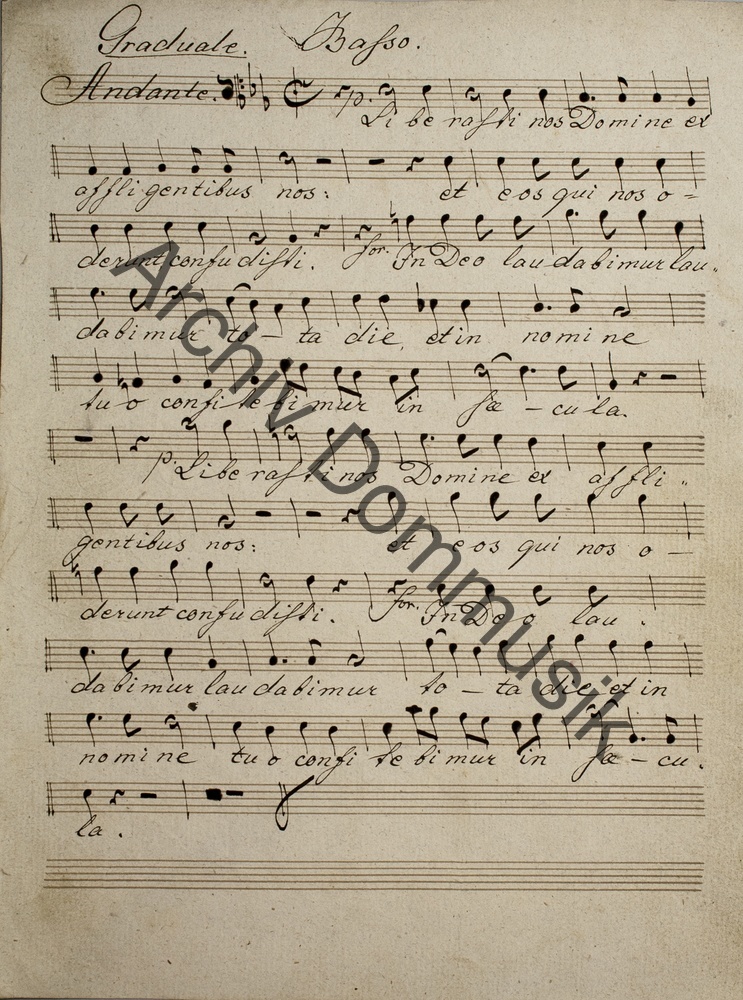 Graduale. Basso.
Andante. p.
Li be rasti nos Domine ex
affligentibus nos: et eos qui nos o=
derunt confudisti. for. In Deo lau dabimur lau„
dabimur to – ta die, et in nomine
tuo confitebimur in sæ – cula.
p. Liberasti nos Domine ex affli„
gentibus nos: et eos qui nos o –
derunt confudisti. for. In Deo lau.
dabimur laudabimur to – ta die, et in
nomine tuo confitebimur in sæ – cu.
la.
Archiv Dommusik